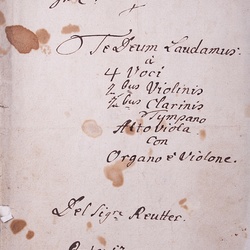 Te Deum Laudamus.
à
4 Voci
2bus Violinis
2bus Clarinis
Tympano
Alto Viola
con
Organo è Violone.
Del Sigre Reutter.